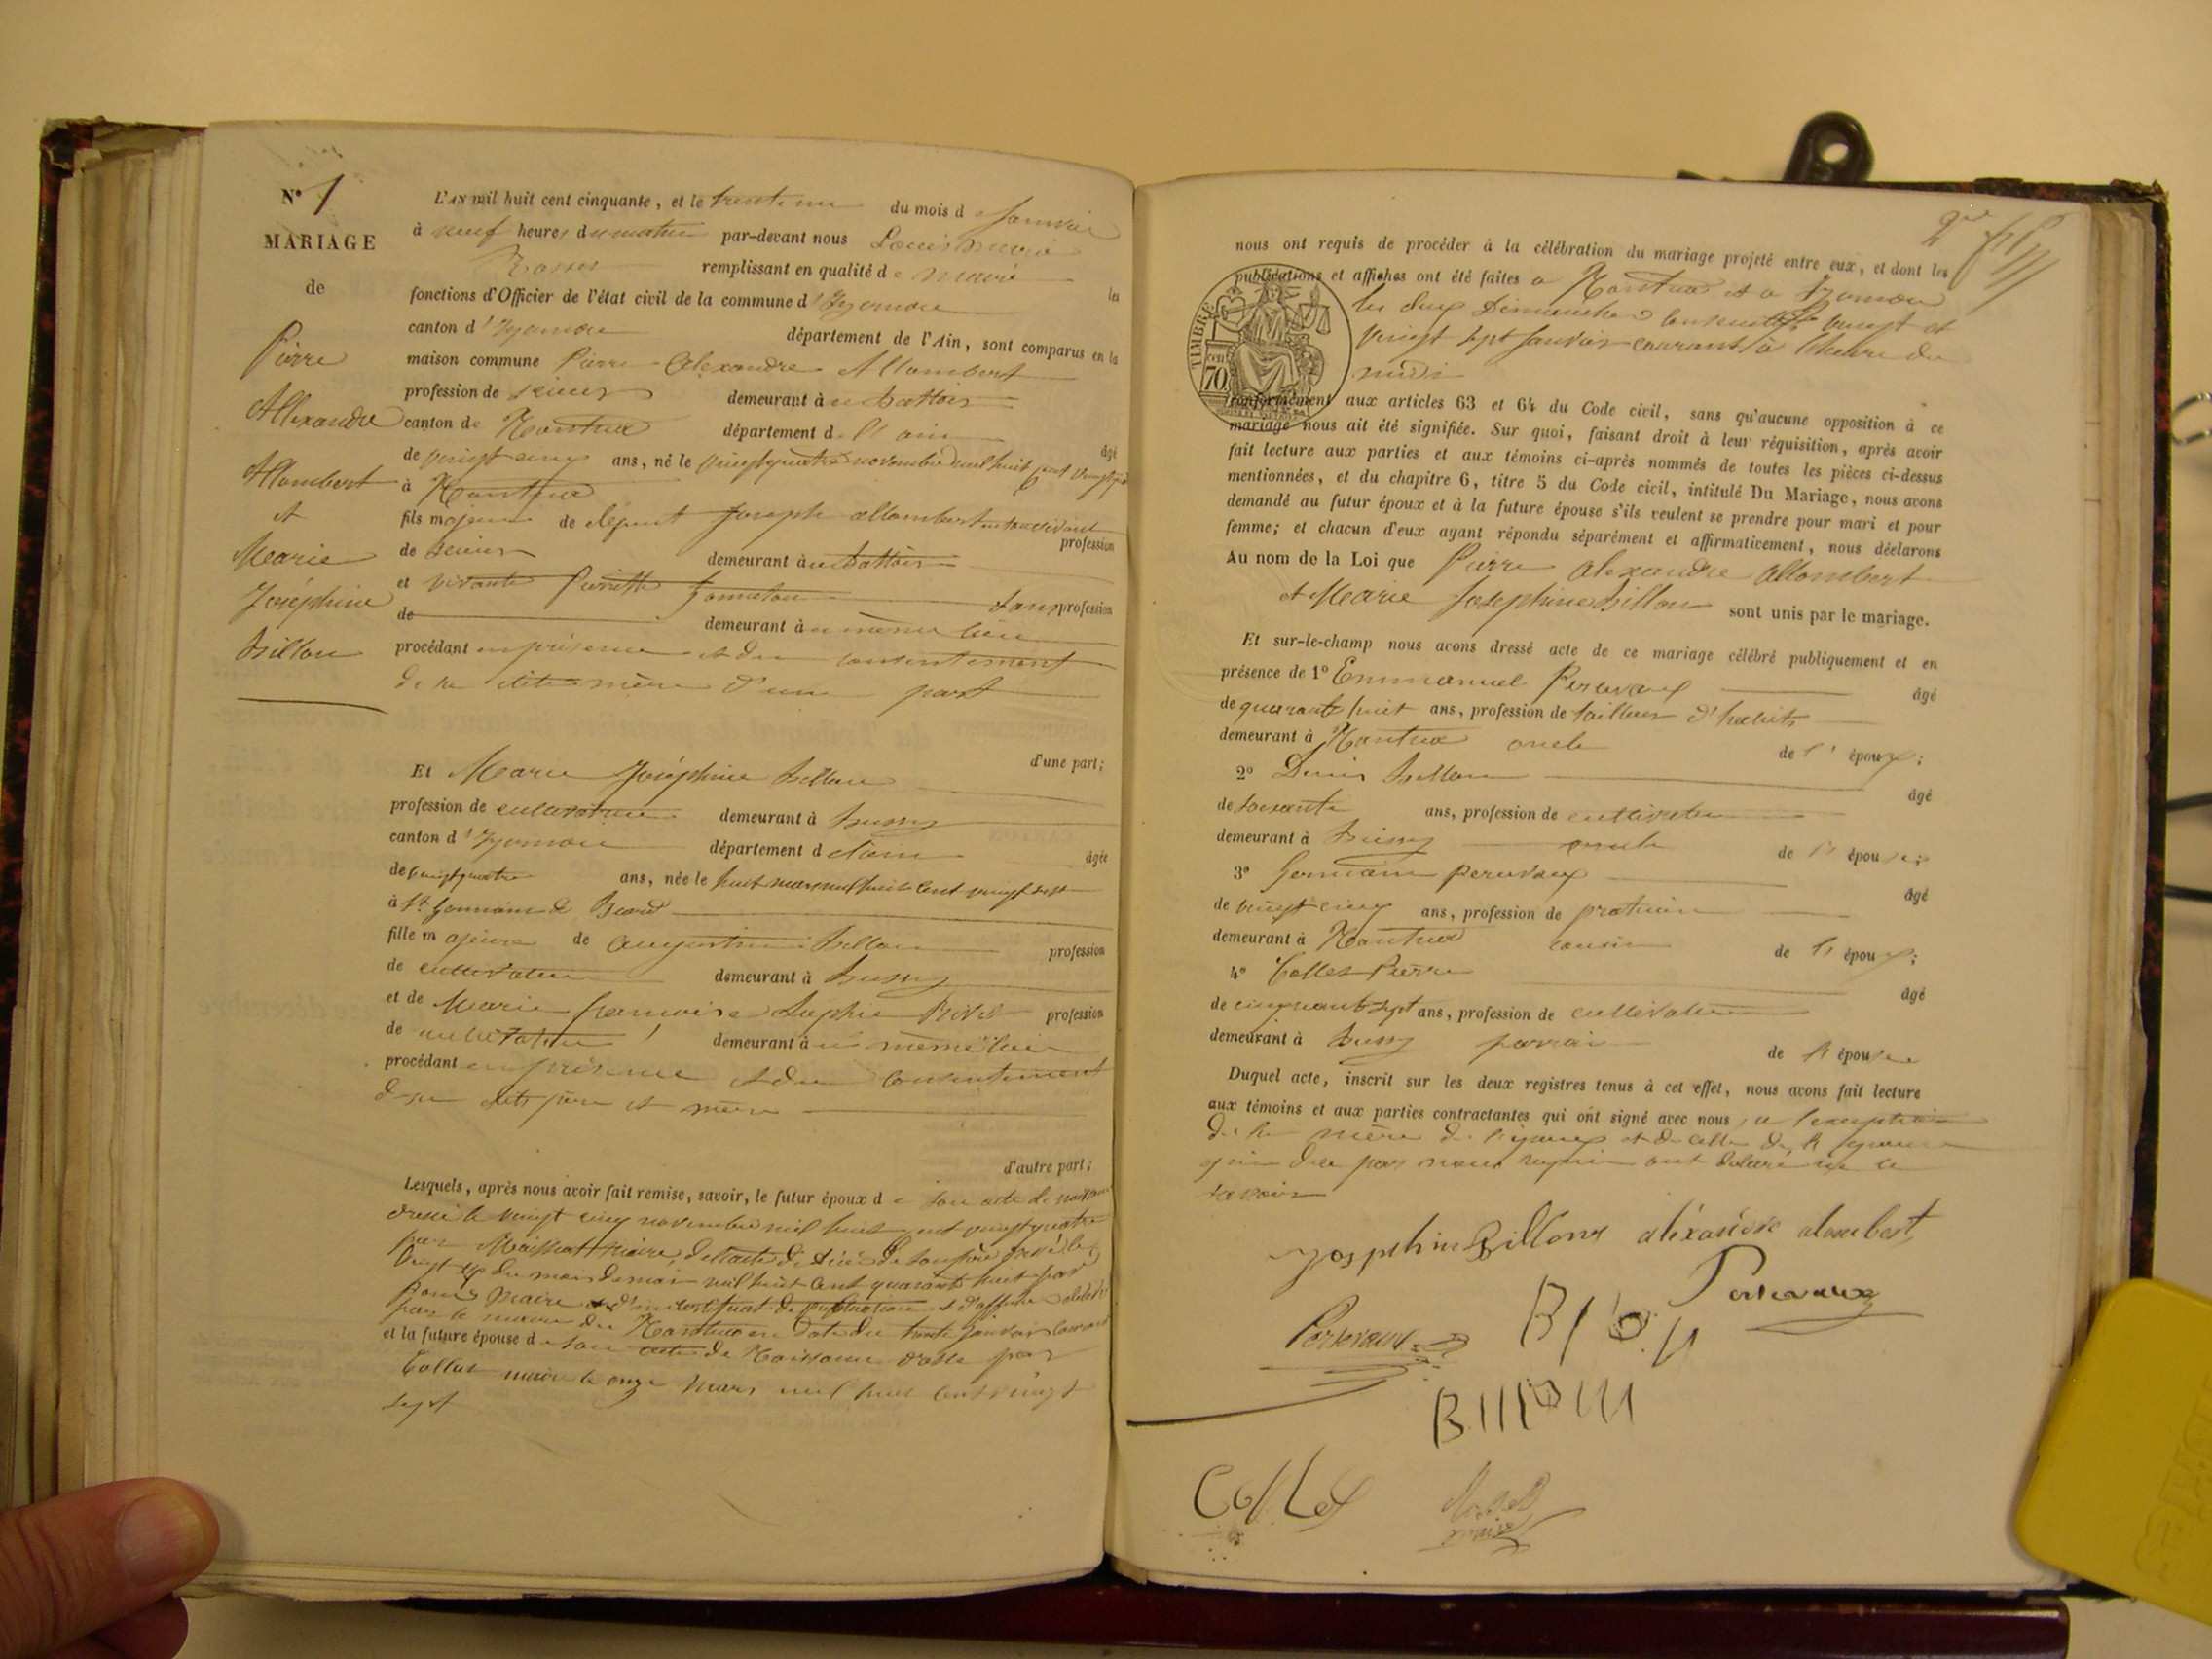 N° 1
MARIAGE
de
Pierre
Allexandre
Allombert
et
Marie
Joséphine
Billon
L'AN mil huit cent cinquante, et le trente un du mois de Janvier
à neuf heures du matin par-devant nous Louis Marie
remplissant en qualité de Maire les
fonctions d'Officier de l'état civil de la commune d'Izernore
canton d'Izernore département de l'Ain, sont comparus en la
maison commune Pierre-Alexandre Allombert
profession de scieur demeurant à un Battoir
canton de Nantua département de l'ain âgé
de vingt cinq ans, né le vingt quatre novembre mil huit cent vingt
à Nantua
fils majeur de defunt Joseph allombert en son vivant profession
de scieur demeurant à un Battoir
et vivante Pierrette sans profession
de demeurant à u même lieu
procédant en présence et du consentement
de sa dite mère d'une part
d'une part;
Et Marie Joséphine Billon
profession de cultivatrice demeurant à Bussy
canton d'Izernore département de l'ain âgée
de vingt quatre ans, née le huit mars mil huit cent vingt sept
à St Germain de Béard
fille majeure de augustin Billon profession
de cultivateur demeurant à Bussy
et de Marie francoise Sophie profession
de cultivatrice demeurant à u même lieu
procédant en présence et du consentement
de ses dits père et mère
d'autre part;
Lesquels, après nous avoir fait remise, savoir, le futur époux de son acte de naissance
dressé le vingt cinq novembre mil huit cent vingt quatre
par maire, de l'acte de décès de son père
vingt du mois de mai mil huit cent quarante huit par
maire et d'un certificat de publication et d'affiche
par le maire de Nantua en date du trente janvier courant
et la future épouse de son acte de naissance dressé par
Collet maire le onze Mars mil huit cent vingt
sept
nous ont requis de procéder à la célébration du mariage projeté entre eux, et dont les
publications et affiches ont été faites a Nantua et a Izernore
les deux Dimanches consecutifs vingt et
vingt sept Janvier courant à l'heure de
midi
TIMBRE
70
conformément aux articles 63 et 64 du Code civil, sans qu'aucune opposition à ce
mariage nous ait été signifiée. Sur quoi, faisant droit à leur réquisition, après avoir
fait lecture aux parties et aux témoins ci-après nommés de toutes les pièces ci-dessus
mentionnées, et du chapitre 6, titre 5 du Code civil, intitulé Du Mariage, nous avons
demandé au futur époux et à la future épouse s'ils veulent se prendre pour mari et pour
femme; et chacun d'eux ayant répondu séparément et affirmativement, nous déclarons
Au nom de la Loi que Pierre alexandre allombert
et Marie Josephine Billon sont unis par le mariage.
Et sur-le-champ nous avons dressé acte de ce mariage célébré publiquement et en
présence de 1° Emmanuel Perevaux âgé
de quarante huit ans, profession de tailleur d'habits
demeurant à Nantua oncle de l'époux;
2° Denis Billon âgé
de soixante ans, profession de cultivateur
demeurant à Bussy oncle de l'épouse;
3° Germain perevaux âgé
de vingt cinq ans, profession de praticien
demeurant à Nantua cousin de l'époux;
4° Collet Pierre âgé
de cinquante sept ans, profession de cultivateur
demeurant à Bussy parrain de l'épouse
Duquel acte, inscrit sur les deux registres tenus à cet effet, nous avons fait lecture
aux témoins et aux parties contractantes qui ont signé avec nous, a l'exception
de la mère de l'époux et de celle de l'épouse
qui de par nous requis ont déclaré ne le
savoir
Josephine Billon aléxandre alombert
Perevaux
Collet
maire